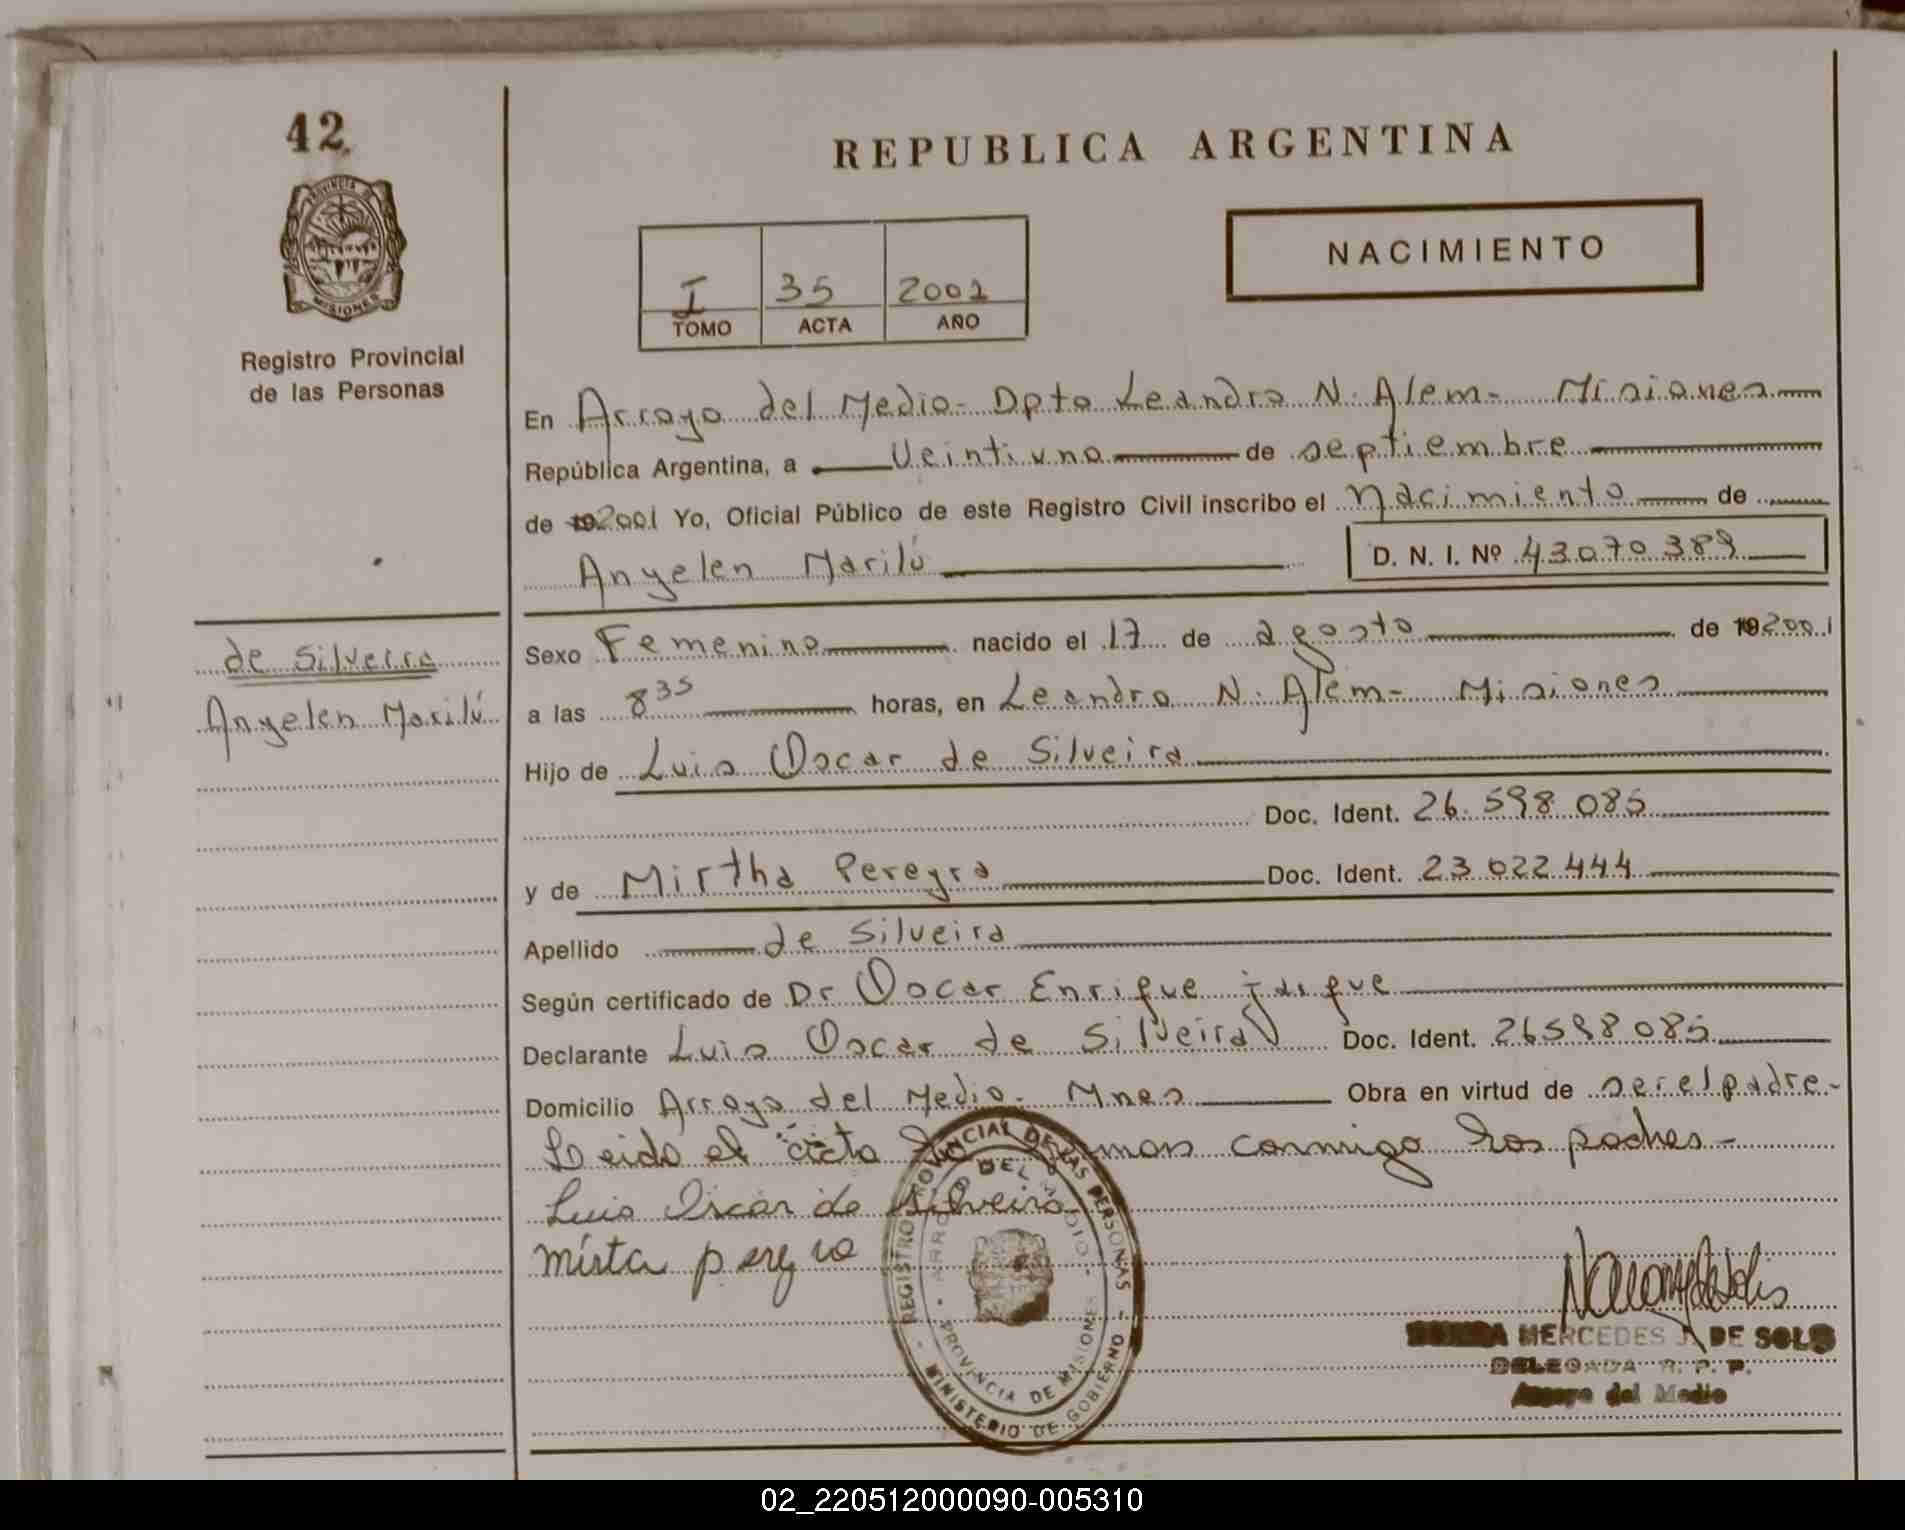 42
REPUBLICA ARGENTINA
PROVINCIA DE
MISIONES
Registro Provincial
de las Personas
I 35 2001
TOMO ACTA AÑO
NACIMIENTO
En Arroyo del Medio- Dpto Leandro N. Alem- Misiones
República Argentina, a Veintiuno de septiembre
de 192001 Yo, Oficial Público de este Registro Civil inscribo el nacimiento de
Anyelen Marilú D. N. I. Nº 43070389
de Silveira
Anyelen Marilú
Sexo Femenino nacido el 17 de agosto de 192001
a las 8 35 horas, en Leandro N. Alem- Misiones
Hijo de Luis Oscar de Silveira
Doc. Ident. 26.598.085
y de Mirtha Pereyra Doc. Ident. 23 022 444
Apellido de Silveira
Según certificado de Dr Oscar Enrique
Declarante Luis Oscar de Silveira Doc. Ident. 26598085
Domicilio Arroyo del Medio- Mnes Obra en virtud de ser el padre-
Leida el acta conmigo los padres-
Luis Oscar de Silveira
mirta pereyra
REGISTRO PROVINCIAL DE LAS PERSONAS - MINISTERIO DE GOBIERNO -
ARROYO DEL MEDIO - PROVINCIA DE MISIONES
MERCEDES J. DE SOLIS
DELEGADA R. P. P.
Arroyo del Medio
02_220512000090-005310